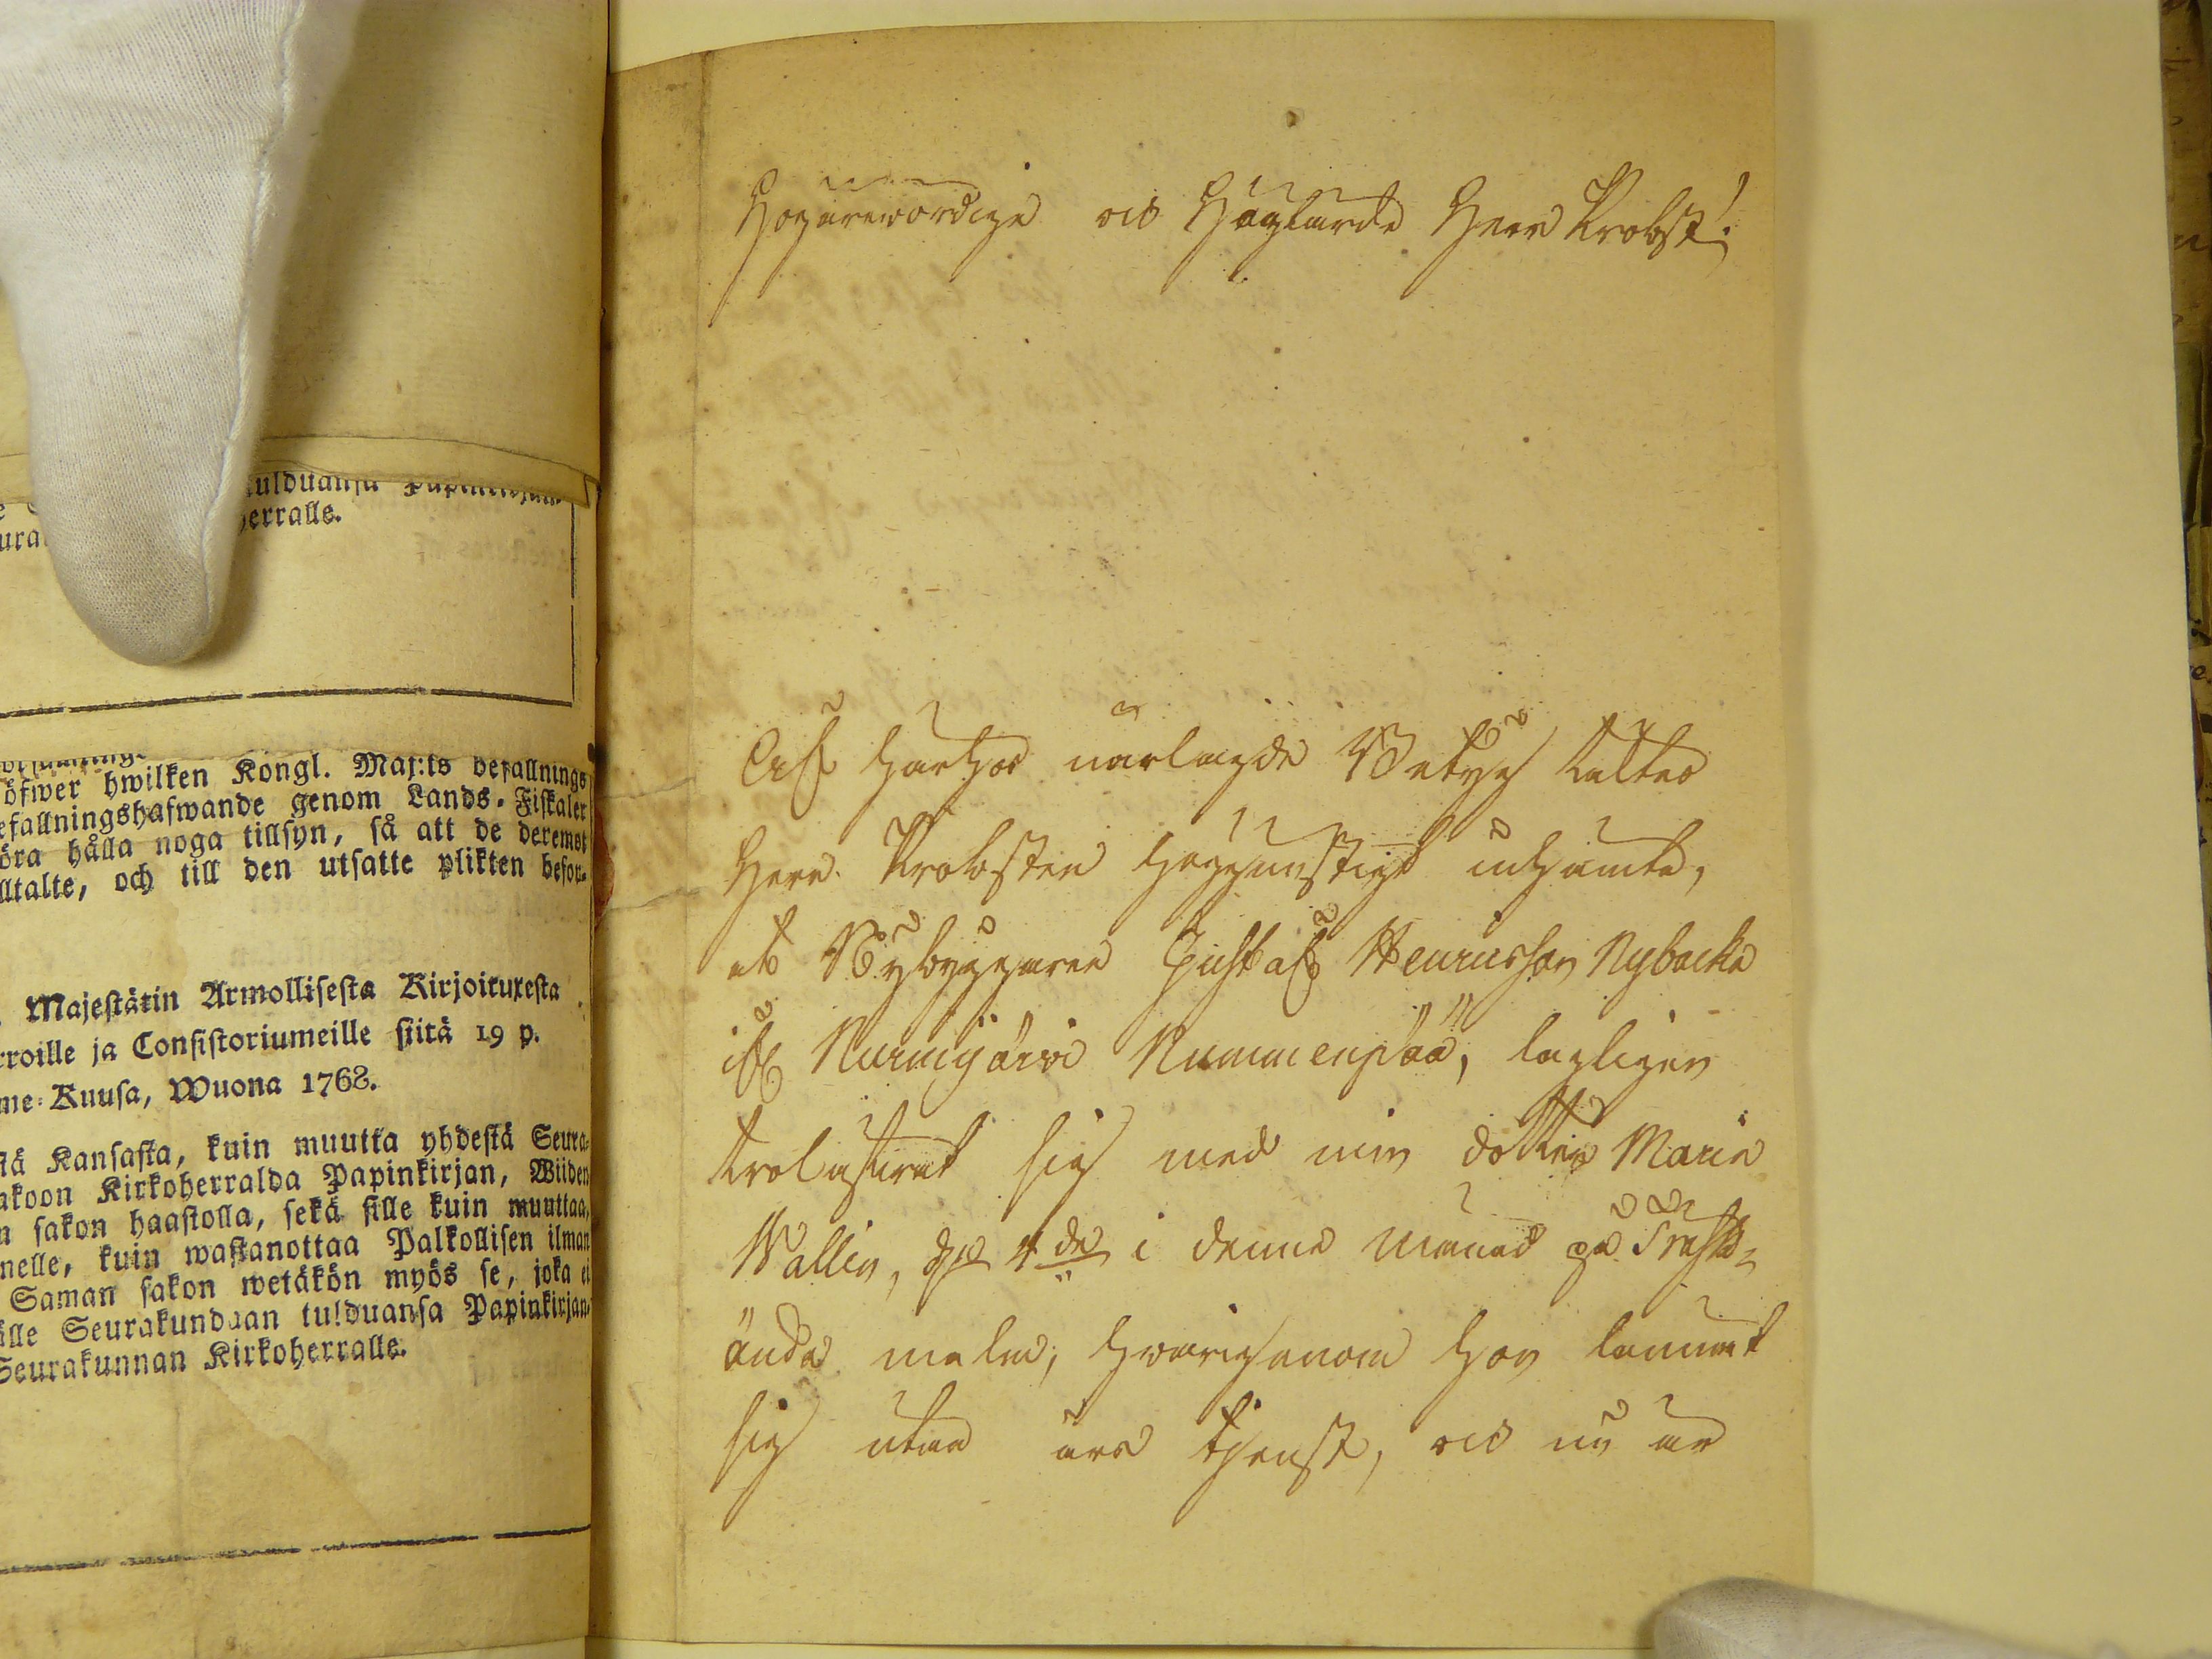 ulduansa
herralle.
öfwer hwilken Kongl. Maj:ts befallnings
efallningshafwande genom Lands-Fiskaler
öra hålla noga tillsyn, så att de deremot
lltalte, och till den utsatte plikten befor-
Majestätin Armollisesta Kirjoituxesta
rroille ja Consistoriumeille siitä 19 p.
me-Kuusa, Wuona 1768.
stä Kansasta, kuin muutta yhdestä Seura-
akoon Kirkoherralda Papinkirjan, Wiiden
n sakon haastolla, sekä sille kuin muuttaa,
nelle, kuin wastanottaa Palkollisen ilman
Saman sakon wetäkön myös se, joka ei
älle Seurakundaan tulduansa Papinkirjan-
Seurakunnan Kirkoherralle.
Högärewördige och Höglärde Herr Probst!
Af härhos närlagde Betyg täcktes
Herr Probsten höggunstigt inhämta,
at Nybyggaren Gustaf Henricsson Nybacka
ifr Nurmijärvi Nummenpää, lagligen
trolåfwat sig med min dotter Maria
Wallin, d. 4de i denne Månad på Träsk-
ända malm, hwarigenom hon lemnat
sig utan års tjenst, och nu är